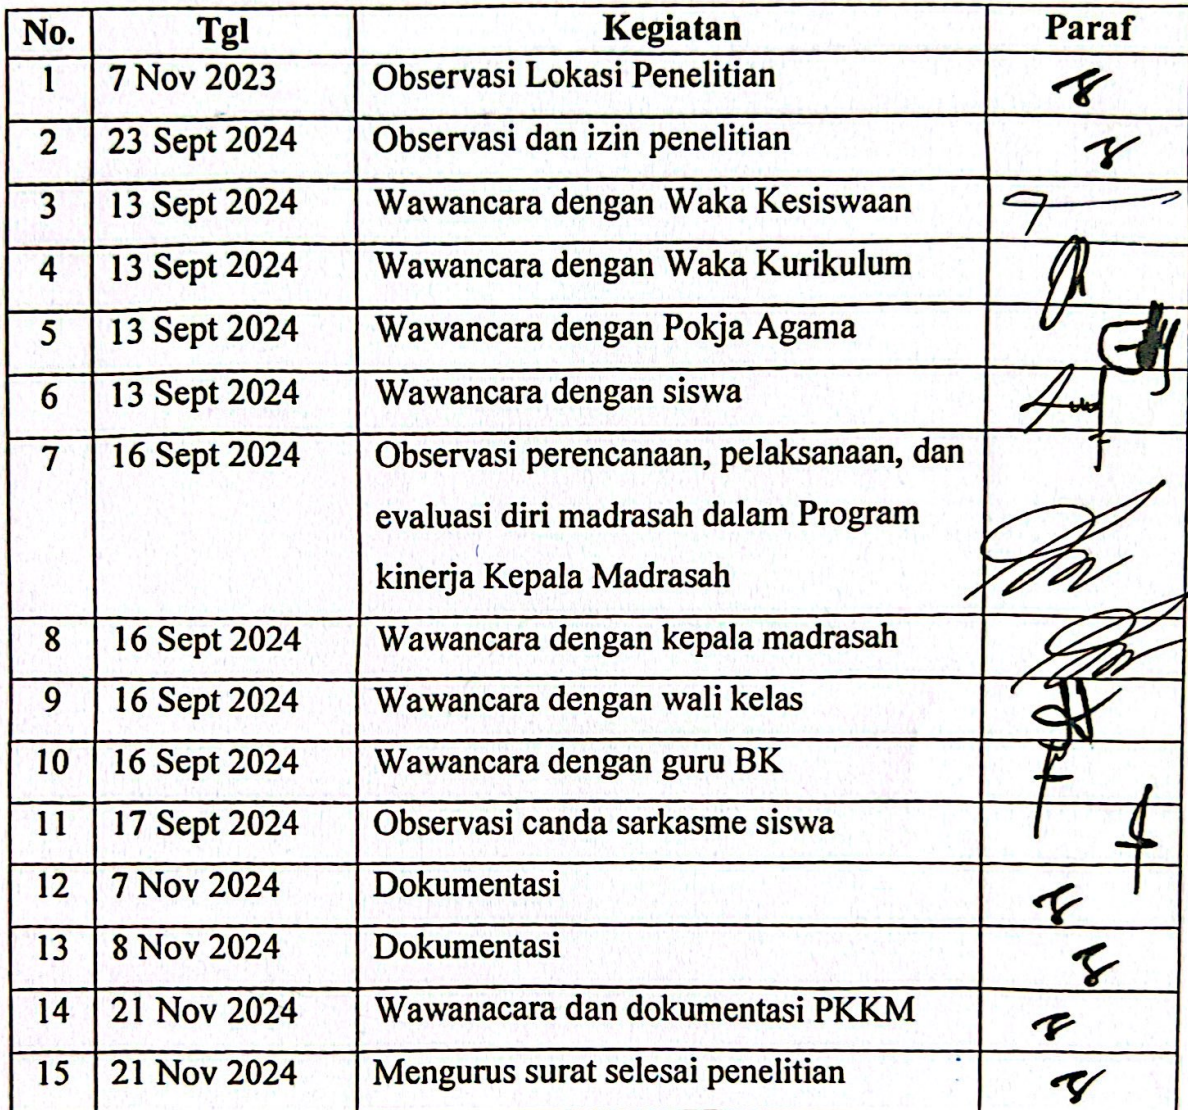 No. Tgl Kegiatan Paraf
1 7 Nov 2023 Observasi Lokasi Penelitian
2 23 Sept 2024 Observasi dan izin penelitian
3 13 Sept 2024 Wawancara dengan Waka Kesiswaan
4 13 Sept 2024 Wawancara dengan Waka Kurikulum
5 13 Sept 2024 Wawancara dengan Pokja Agama
6 13 Sept 2024 Wawancara dengan siswa
7 16 Sept 2024 Observasi perencanaan, pelaksanaan, dan
evaluasi diri madrasah dalam Program
kinerja Kepala Madrasah
8 16 Sept 2024 Wawancara dengan kepala madrasah
9 16 Sept 2024 Wawancara dengan wali kelas
10 16 Sept 2024 Wawancara dengan guru BK
11 17 Sept 2024 Observasi canda sarkasme siswa
12 7 Nov 2024 Dokumentasi
13 8 Nov 2024 Dokumentasi
14 21 Nov 2024 Wawanacara dan dokumentasi PKKM
15 21 Nov 2024 Mengurus surat selesai penelitian